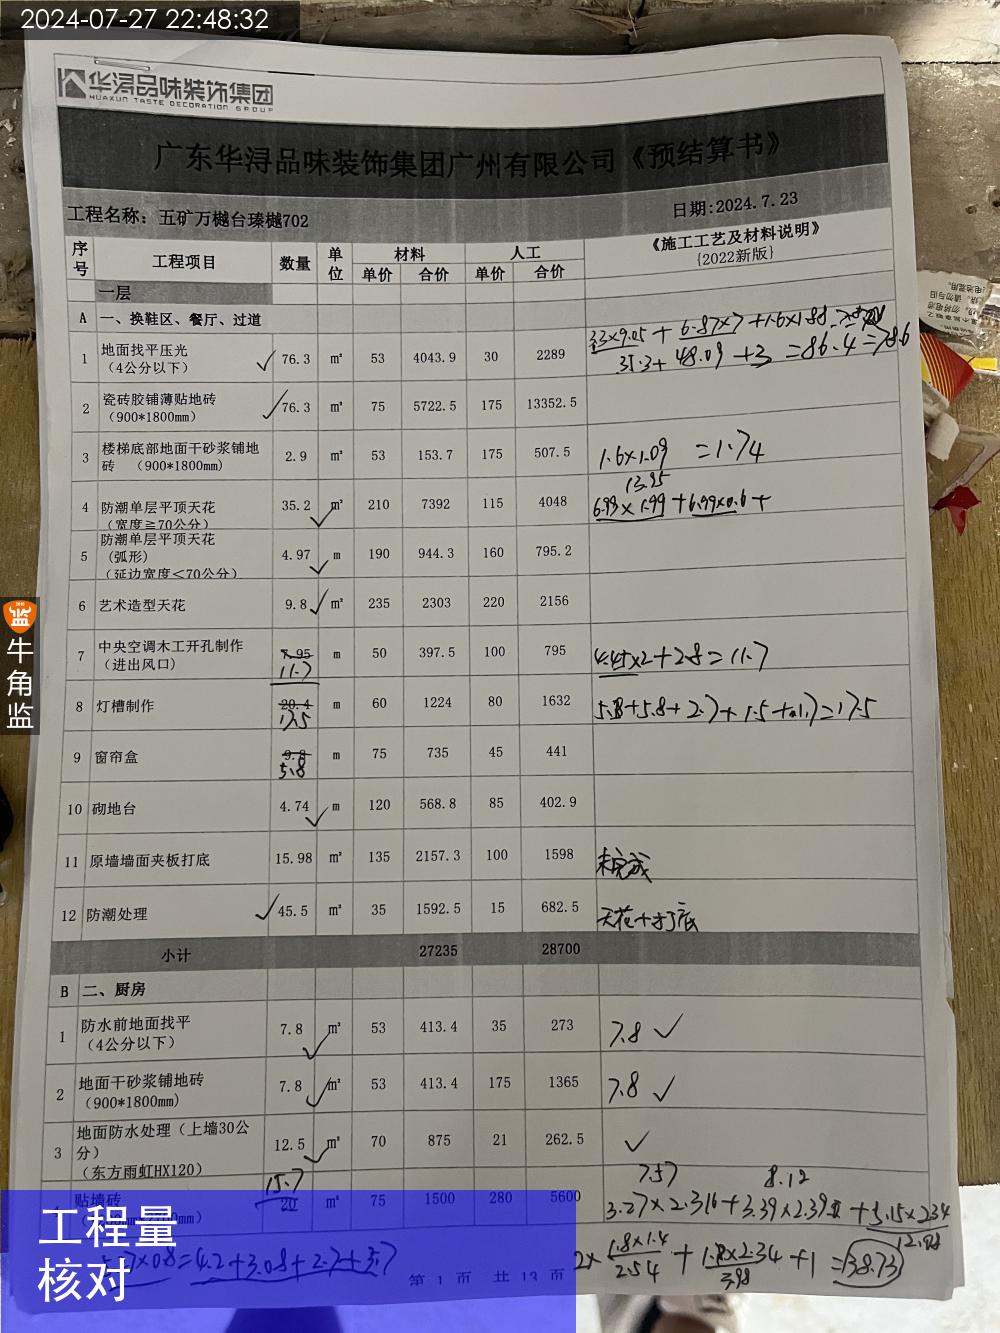 2024-07-27 22:48:32
华浔品味装饰集团
HUAXUN TASTE DECORATION GROUP
广东华浔品味装饰集团广州有限公司《预结算书》
工程名称：五矿万樾台瑧樾702 日期:2024.7.23
序号 工程项目 数量 单位 材料 人工 《施工工艺及材料说明》
单价 合价 单价 合价 {2022新版}
一层
A 一、换鞋区、餐厅、过道
1 地面找平压光（4公分以下） ✓ 76.3 ㎡ 53 4043.9 30 2289
35.3+48.09+3=86.4=78.6
2 瓷砖胶铺薄贴地砖（900*1800mm） ✓ 76.3 ㎡ 75 5722.5 175 13352.5
3 楼梯底部地面干砂浆铺地砖 （900*1800mm) 2.9 ㎡ 53 153.7 175 507.5 1.6×1.09=1.74
13.95
4 防潮单层平顶天花（宽度≧70公分） 35.2 ✓ ㎡ 210 7392 115 4048 6.99×1.99+6.99×0.6+
5 防潮单层平顶天花（弧形）（延边宽度＜70公分） 4.97 ✓ m 190 944.3 160 795.2
6 艺术造型天花 9.8 ✓ ㎡ 235 2303 220 2156
7 中央空调木工开孔制作（进出风口） 7.95 11.7 m 50 397.5 100 795 4.45×2+2.8=11.7
8 灯槽制作 20.4 17.5 m 60 1224 80 1632 5.8+5.8+2.7+1.5+1.7=17.5
9 窗帘盒 9.8 5.8 m 75 735 45 441
10 砌地台 4.74 ✓ m 120 568.8 85 402.9
11 原墙墙面夹板打底 15.98 ㎡ 135 2157.3 100 1598 未完成
12 防潮处理 ✓ 45.5 ㎡ 35 1592.5 15 682.5 天花+打底
小计 27235 28700
B 二、厨房
1 防水前地面找平（4公分以下） 7.8 ✓ ㎡ 53 413.4 35 273 7.8 ✓
2 地面干砂浆铺地砖（900*1800mm) 7.8 ✓ ㎡ 53 413.4 175 1365 7.8 ✓
3 地面防水处理（上墙30公分）（东方雨虹HX120） 12.5 ✓ ㎡ 70 875 21 262.5 ✓
7.57 8.12
贴墙砖 15.7 20 ㎡ 75 1500 280 5600 3.27×2.316+3.39×2.39+5.15×2.34
12.08
×0.8=4.2+3.08+2.7+5.7
2×1.8×1.4+1.7×2.34+1=38.73
2.54 3.98
第 1 页 共 13 页
牛角监
工程量
核对